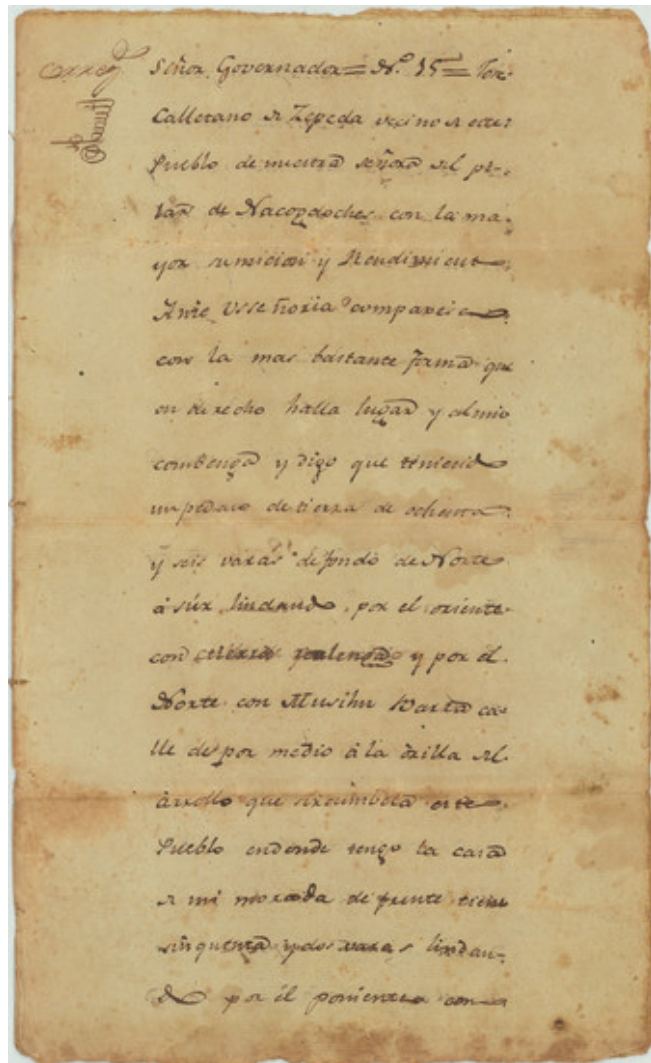 Señor Governador = N.º 15 = Jose
Calletano de Zepeda vecino de este
Pueblo de nuestra señora del pi-
lar de Nacogdoches con la ma-
yor sumicion y Rendimient
Ante Usseñoria comparesco
con la mas bastante forma que
en derecho halla lugar y al mio
combenga y digo que teniendo
un pedaso de tierra de ochenta
y seis varas de fondo de Norte
á súr lindando por el oriente
con realenga y por el
Norte con Musihu ca-
lle de por medio á la orilla del
árrollo que sircumbala este
Pueblo endonde tengo la casa
de mi morada de frente tiene
sinquenta y dos varas lindan-
do por el poniente con